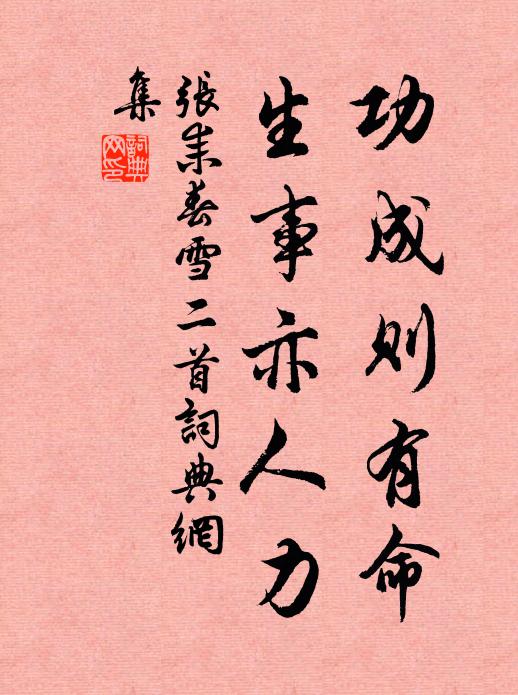 功成則有命
生事亦人力
張耒春雪二首詞典網
集
詞典
网印